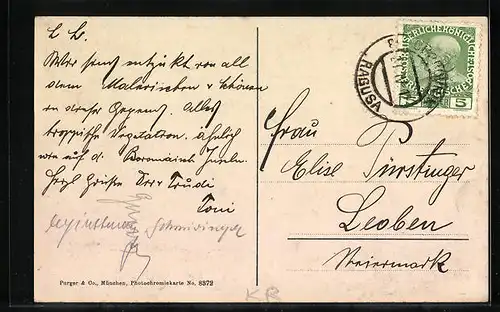 L. E.
Wir sind entzückt von all
dem Malerischen u. Schönen
in dieser Gegend. Alles
tropische Vegetation. Ähnlich
wie auf d. Boromäisch. Inseln.
Herzl Grüße Trudi
Toni
Schmidinger
Purger & Co., München, Photochromiekarte No. 8372
KR
RAGUSA
5
Frau
Elise Fürstinger
Leoben
Steiermark